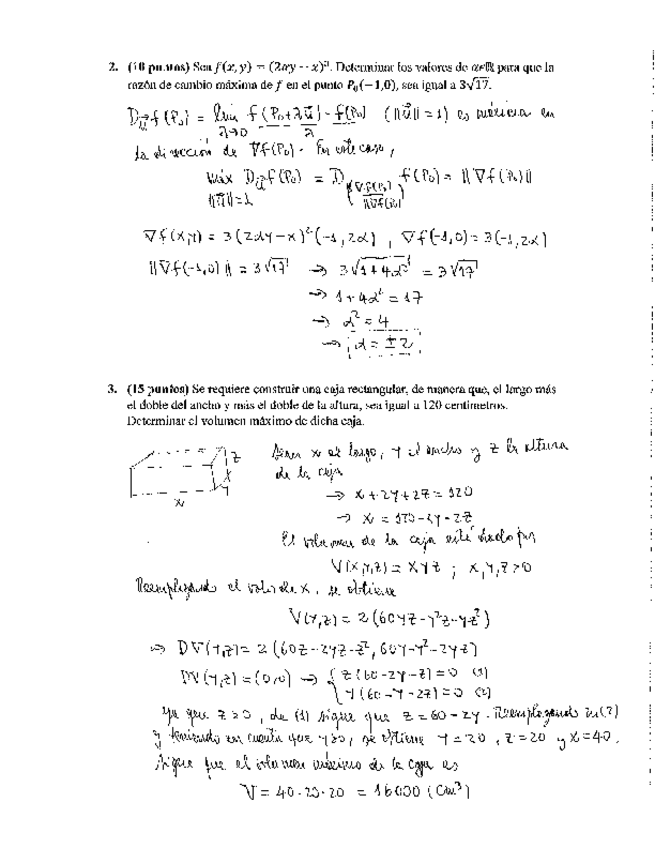 2. (10 puntos) Sea f(x, y) = (2αy - x)³. Determinar los valores de α∈ℝ para que la
razón de cambio máxima de f en el punto P₀(−1,0), sea igual a 3√17.
D_u⃗ f(P₀) = lim_{λ→0} (f(P₀+λu⃗) - f(P₀))/λ (||u⃗|| = 1) es máxima en
la dirección de ∇f(P₀). En este caso,
máx_{||u⃗||=1} D_u⃗ f(P₀) = D_(∇f(P₀)/||∇f(P₀)||) f(P₀) = ||∇f(P₀)||
∇f(x,y) = 3(2αy-x)²(-1, 2α) , ∇f(-1,0) = 3(-1, 2α)
||∇f(-1,0)|| = 3√17 → 3√(1+4α²) = 3√17
→ 1+4α² = 17
→ α² = 4
→ α = ±2
3. (15 puntos) Se requiere construir una caja rectangular, de manera que, el largo más
el doble del ancho y más el doble de la altura, sea igual a 120 centímetros.
Determinar el volumen máximo de dicha caja.
z
y
x
Sean x el largo, y el ancho y z la altura
de la caja
→ x+2y+2z = 120
→ x = 120-2y-2z
El volumen de la caja está dado por
V(x,y,z) = xyz ; x,y,z>0
Reemplazando el valor de x, se obtiene
V(y,z) = 2(60yz-y²z-yz²)
⇒ DV(y,z) = 2(60z-2yz-z², 60y-y²-2yz)
DV(y,z) = (0,0) → { z(60-2y-z) = 0 (1)
y(60-y-2z) = 0 (2)
Ya que z>0, de (1) sigue que z = 60-2y. Reemplazando en (2)
y teniendo en cuenta que y>0, se obtiene y=20, z=20 y x=40.
Sigue que el volumen máximo de la caja es
V = 40·20·20 = 16000 (cm³)